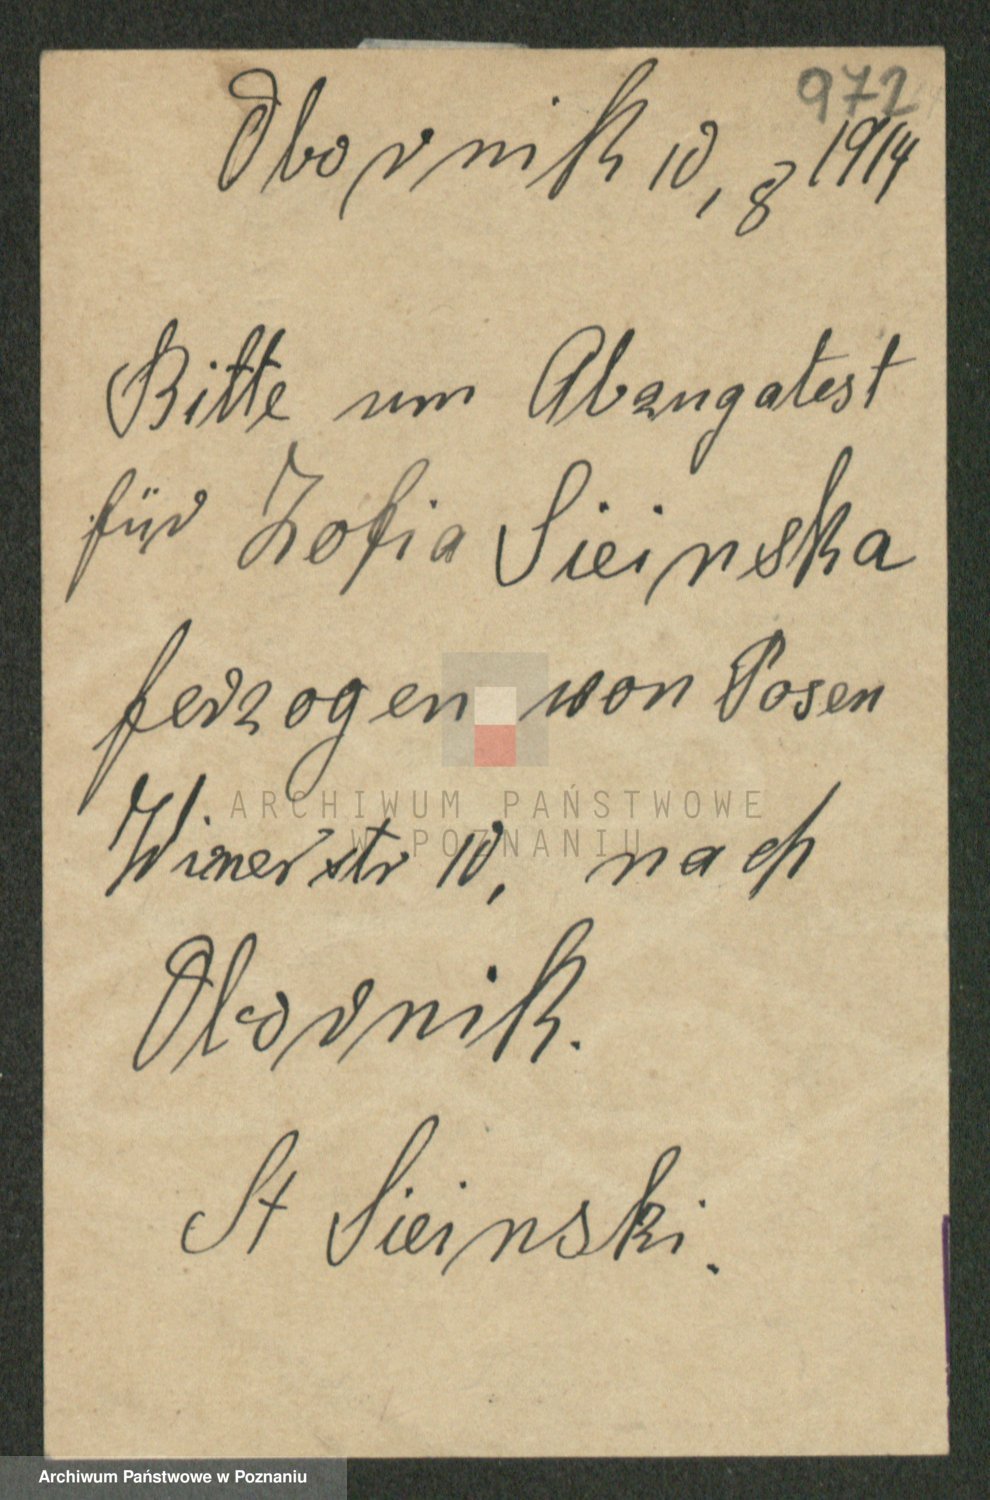 972
Obornik 10, 8 1914
Bitte um Abzugatest
für Zofia Sieinska
ferzogen won Posen
str 10, nach
Obornik.
St Sieinski.
ARCHIWUM PAŃSTWOWE
W POZNANIU
Archiwum Państwowe w Poznaniu